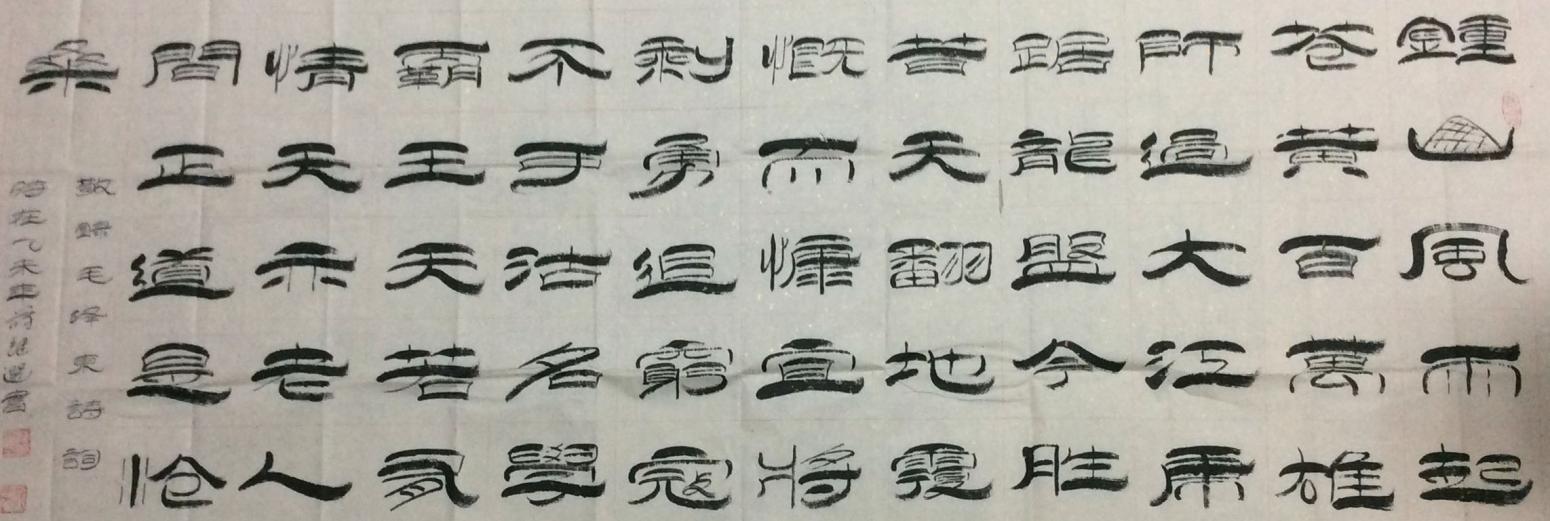 鍾山風雨起
苍黄百萬雄
师過大江虎
踞龍盤今胜
昔天翻地覆
慨而慷宜將
剩勇追窮寇
不可沽名學
霸王天若有
情天亦老人
間正道是沧
桑
敬錄毛泽東詩詞
時在乙未年書